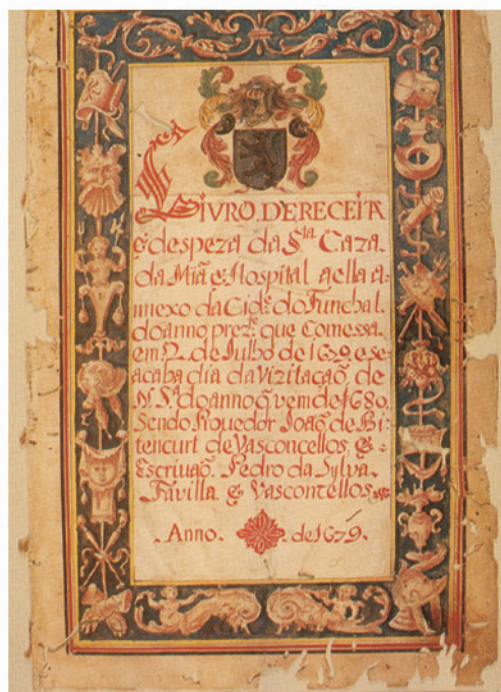 LIVRO, DE RECEITA
& despeza da Sta. Caza.
da Mia. & Hospital a ella a-
nnexo da Cide. do Funchal.
do anno prezte. que Comessa.
em 2. de Julho de 1679. e se
acaba dia da Vizitaçaõ, de
N. Sa. do anno q̃ vem de 1680.
Sendo Provedor Joaõ de Bi-
tencurt de Vasconcellos, & -
Escrivaõ. Pedro da Sylva.
Favilla & Vasconcellos
. Anno. . de 1679.